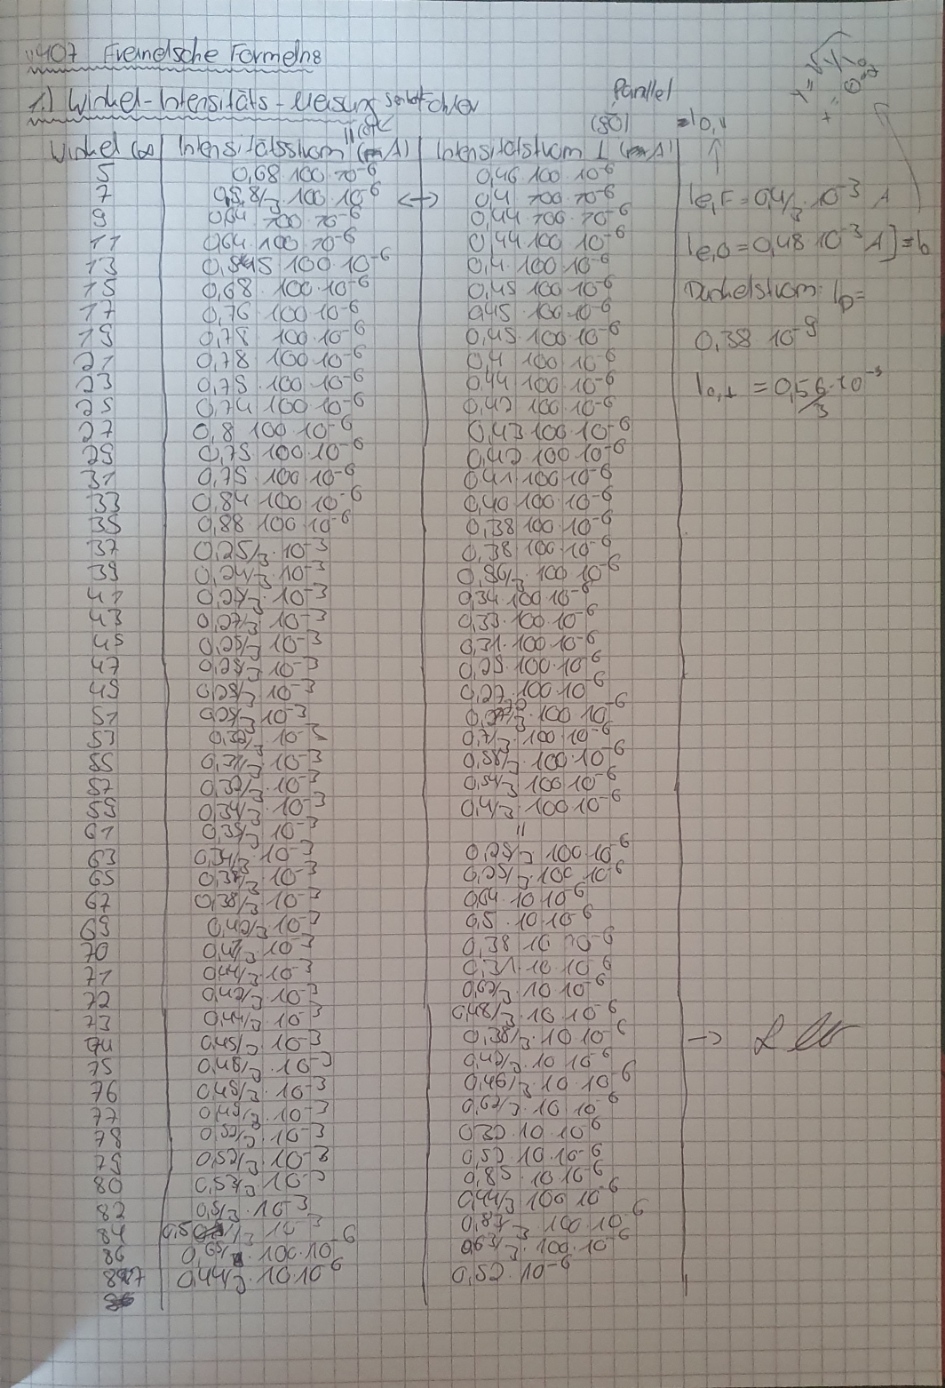 "407 Fresnelsche Formeln"
1.) Winkel-Intensitäts-Messung
Parallel
(90) = I0,11
Winkel (°) | Intensitätsstrom || (mA) | Intensitätsstrom ⊥ (mA)
5 0,68·100·10⁻⁶ 0,46·100·10⁻⁶
7 0,58/3·100·10⁻⁶ <-> 0,4·100·10⁻⁶
9 0,64·100·10⁻⁶ 0,44·100·10⁻⁶
11 0,64·100·10⁻⁶ 0,44·100·10⁻⁶
13 100·10⁻⁶ 0,4·100·10⁻⁶
15 0,68·100·10⁻⁶ 0,45·100·10⁻⁶
17 0,76·100·10⁻⁶ 0,45·100·10⁻⁶
19 0,78·100·10⁻⁶ 0,45·100·10⁻⁶
21 0,78·100·10⁻⁶ 0,4·100·10⁻⁶
23 0,75·100·10⁻⁶ 0,44·100·10⁻⁶
25 0,74·100·10⁻⁶ 0,42·100·10⁻⁶
27 0,8·100·10⁻⁶ 0,43·100·10⁻⁶
29 0,75·100·10⁻⁶ 0,42·100·10⁻⁶
31 0,75·100·10⁻⁶ 0,41·100·10⁻⁶
33 0,84·100·10⁻⁶ 0,40·100·10⁻⁶
35 0,88·100·10⁻⁶ 0,38·100·10⁻⁶
37 0,25/3·10⁻³ 0,38·100·10⁻⁶
39 0,24/3·10⁻³ 0,96/3·100·10⁻⁶
41 0,27/3·10⁻³ 0,34·100·10⁻⁶
43 0,27/3·10⁻³ 0,33·100·10⁻⁶
45 0,25/3·10⁻³ 0,31·100·10⁻⁶
47 0,28/3·10⁻³ 0,29·100·10⁻⁶
49 0,29/3·10⁻³ 0,27·100·10⁻⁶
51 0,29/3·10⁻³ 100·10⁻⁶
53 10⁻³ 0,7/3·100·10⁻⁶
55 0,31/3·10⁻³ 0,58/3·100·10⁻⁶
57 0,32/3·10⁻³ 0,54/3·100·10⁻⁶
59 0,34/3·10⁻³ 0,4/3·100·10⁻⁶
61 0,35/3·10⁻³ "
63 0,34/3·10⁻³ 0,29/3·100·10⁻⁶
65 10⁻³ 0,25/3·100·10⁻⁶
67 0,38/3·10⁻³ 0,64·10·10⁻⁶
69 0,40/3·10⁻³ 0,5·10·10⁻⁶
70 10⁻³ 0,38·10·10⁻⁶
71 0,44/3·10⁻³ 0,31·10·10⁻⁶
72 0,42/3·10⁻³ 0,62/3·10·10⁻⁶
73 0,44/3·10⁻³ 0,48/3·10·10⁻⁶
74 0,45/3·10⁻³ 0,38/3·10·10⁻⁶ ->
75 0,46/3·10⁻³ 0,42/3·10·10⁻⁶
76 0,48/3·10⁻³ 0,46/3·10·10⁻⁶
77 0,49/3·10⁻³ 0,62/3·10·10⁻⁶
78 0,50/3·10⁻³ 0,30·10·10⁻⁶
79 0,52/3·10⁻³ 0,50·10·10⁻⁶
80 0,53/3·10⁻³ 0,85·10·10⁻⁶
82 0,5/3·10⁻³ 0,44/3·100·10⁻⁶
84 10⁻³ 0,87/3·100·10⁻⁶
86 100·10⁻⁶ 0,63/3·100·10⁻⁶
87 0,44/3·10·10⁻⁶ 0,52·10⁻⁶
Ie,F = 0,4/3·10⁻³ A
Ie,0 = 0,48·10⁻³ A] = b
Dunkelstrom: ID =
0,38·10⁻⁹
I0,⊥ = 0,56/3·10⁻³